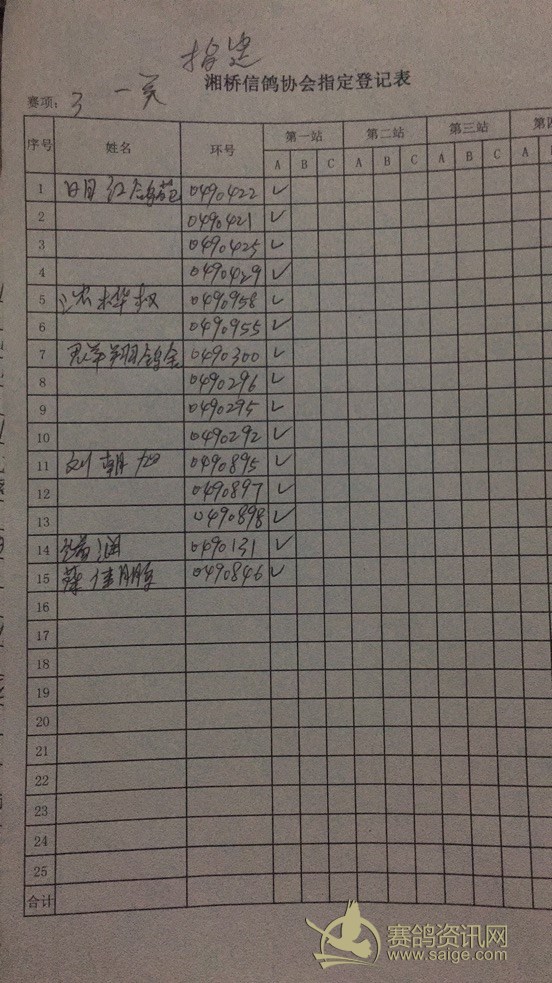 指定
湘桥信鸽协会指定登记表
赛项: 3 一关
序号 姓名 环号 第一站 第二站 第三站
A B C A B C A B C A
1 0490422 ✓
2 0490421 ✓
3 0490425 ✓
4 0490429 ✓
5 洪桦权 0490958 ✓
6 0490955 ✓
7 0490300 ✓
8 0490296 ✓
9 0490295 ✓
10 0490292 ✓
11 刘朝旭 0490895 ✓
12 0490897 ✓
13 0490898 ✓
14 润 0490131 ✓
15 佳鹏 0490846 ✓
16
17
18
19
20
21
22
23
24
25
合计
赛鸽资讯网
www.saige.com